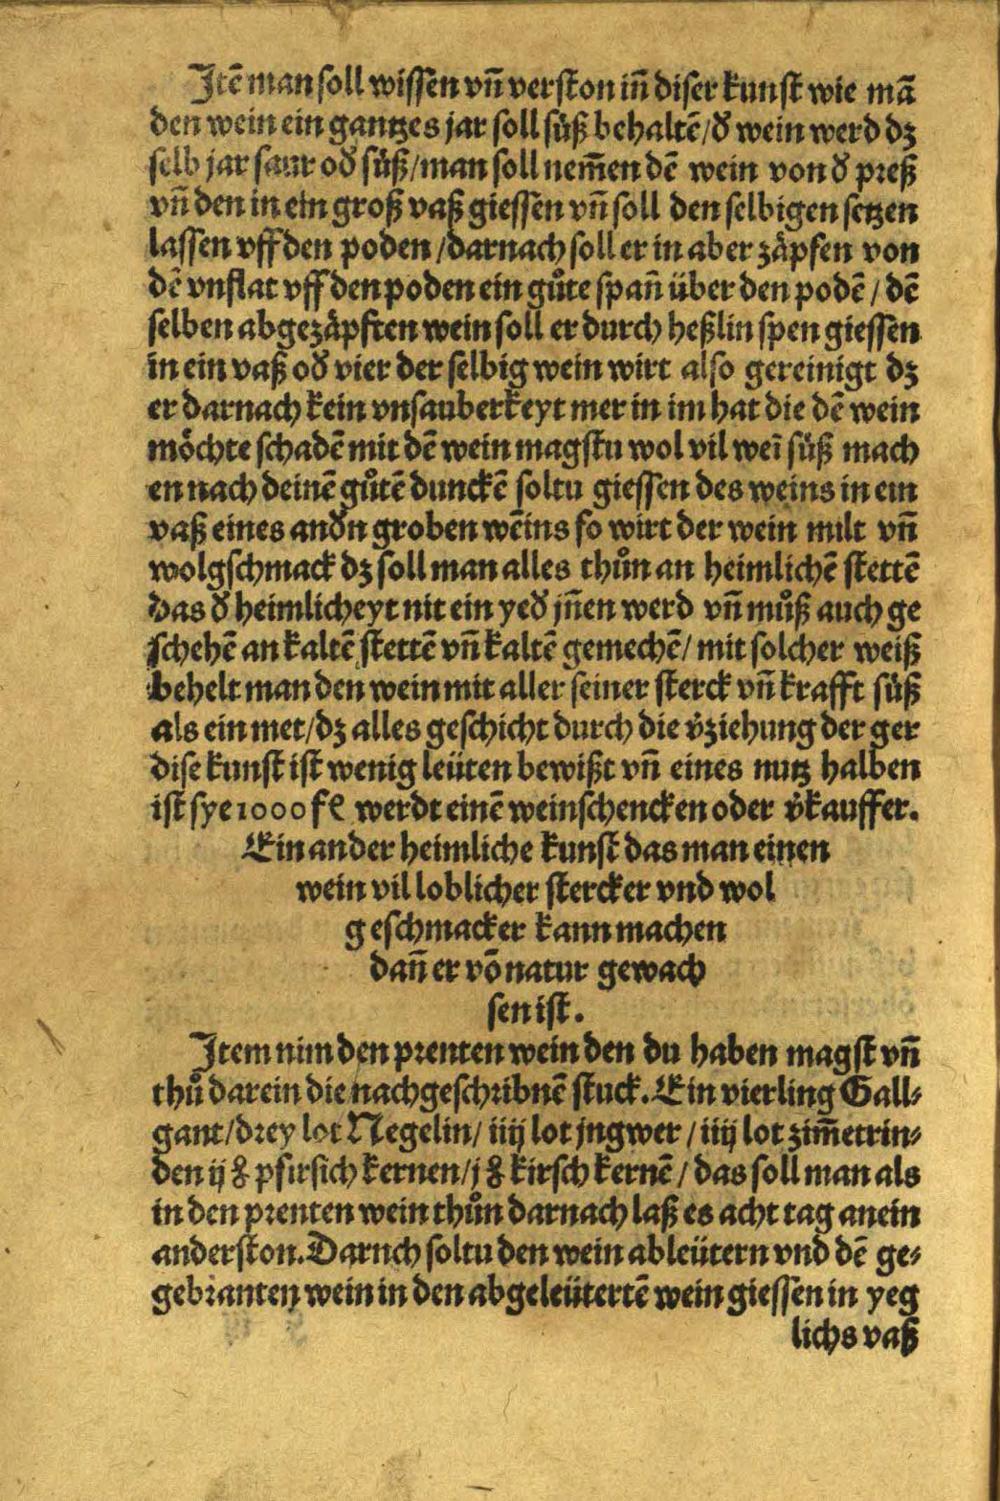 Itē man soll wissen vn̄ verston in̄ diser kunst wie mā
den wein ein gantzes jar soll süß behaltē/ď wein werd dz
selb jar saur oď süß/man soll nem̄en dē wein von ď preß
vn̄ den in ein groß vaß giessen vn̄ soll den selbigen setzen
lassen vff den poden /darnach soll er in aber zäpfen von
dē vnflat vff den poden ein gůte span̄ über den podē / dē
selben abgezäpften wein soll er durch heßlin spen giessen
in ein vaß oď vier der selbig wein wirt also gereinigt dz
er darnach kein vnsauberkeyt mer in im hat die dē wein
möchte schadē mit dē wein magstu wol vil weī süß mach
en nach deinē gůtē dunckē soltu giessen des weins in ein
vaß eines anďn groben wēins so wirt der wein milt vn̄
wolgschmack dz soll man alles thůn an heimlichē stettē
das ď heimlicheyt nit ein yeď jn̄en werd vn̄ můß auch ge
schehē an kaltē stettē vn̄ kaltē gemechē/ mit solcher weiß
behelt man den wein mit aller seiner sterck vn̄ krafft süß
als ein met/dz alles geschicht durch die v̓ziehung der ger
dise kunst ist wenig leüten bewißt vn̄ eines nutz halben
ist sye 1000 fl werdt einē weinschencken oder v̓kauffer.
Ein ander heimliche kunst das man einen
wein vil loblicher stercker vnd wol
geschmacker kann machen
dan̄ er vō natur gewach
sen ist.
Item nim den prenten wein den du haben magst vn̄
thů darein die nachgeschribnē stuck. Ein vierling Gall⸗
gant/drey lot Negelin/ iiij lot jngwer / iiij lot zim̄etrin⸗
den ij ℥ pfirsich kernen/j ℥ kirsch kernē / das soll man als
in den prenten wein thůn darnach laß es acht tag anein
anderston. Darnch soltu den wein ableütern vnd dē ge⸗
gebranten wein in den abgeleütertē wein giessen in yeg
lichs vaß